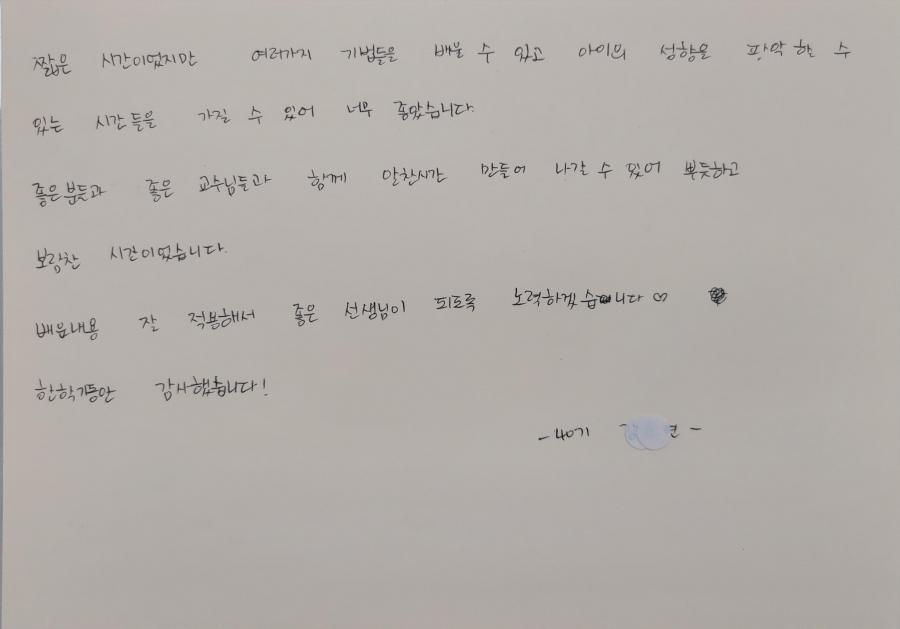 짧은 시간이었지만 여러가지 기법들을 배울 수 있고 아이의 성향을 파악 할 수
있는 시간들을 가질 수 있어 너무 좋았습니다.
좋은분들과 좋은 교수님들과 함께 알찬시간 만들어 나갈 수 있어 뿌듯하고
보람찬 시간이었습니다.
배운내용 잘 적용해서 좋은 선생님이 되도록 노력하겠습니다 ♡
한학기동안 감사했습니다!
- 40기 -